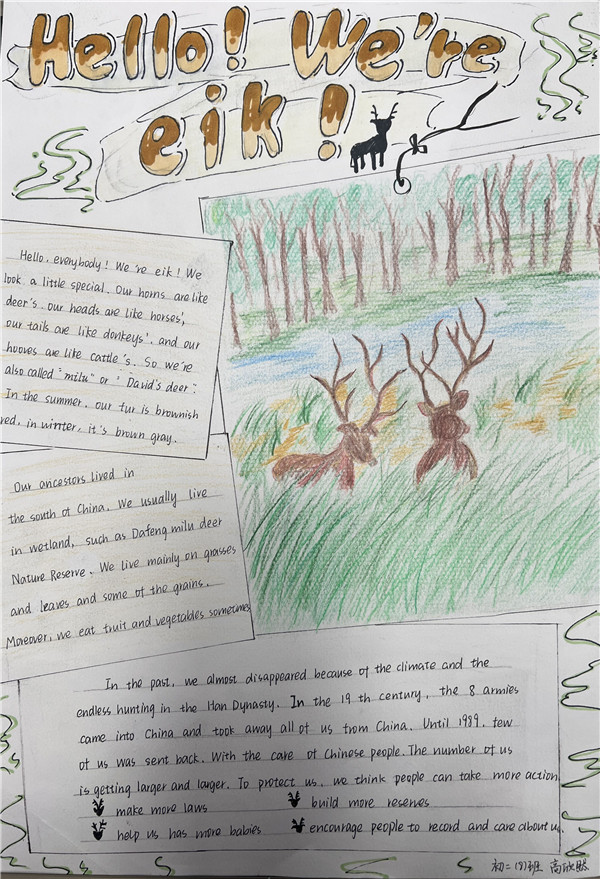 Hello! We're
eik!
Hello, everybody! We're eik! We
look a little special. Our horns are like
deer's. our heads are like horses',
our tails are like donkeys'. and our
hooves are like cattle's. So we're
also called "milu" or "David's deer".
In the summer. our fur is brownish
red, in winter, it's brown gray.
Our ancestors lived in
the south of China. We usually live
in wetland, such as Dafeng milu deer
Nature Reserve. We live mainly on grasses
and leaves and some of the grains.
Moreover, we eat fruit and vegetables sometimes
In the past, we almost disappeared because of the climate and the
endless hunting in the Han Dynasty. In the 19 th century, the 8 armies
came into China and took away all of us from China. Until 1989, few
of us was sent back. With the care of Chinese people. The number of us
is getting larger and larger. To protect us, we think people can take more action.
make more laws
build more reserves
help us has more babies
encourage people to record and care about us.
初二(9)班 高欣